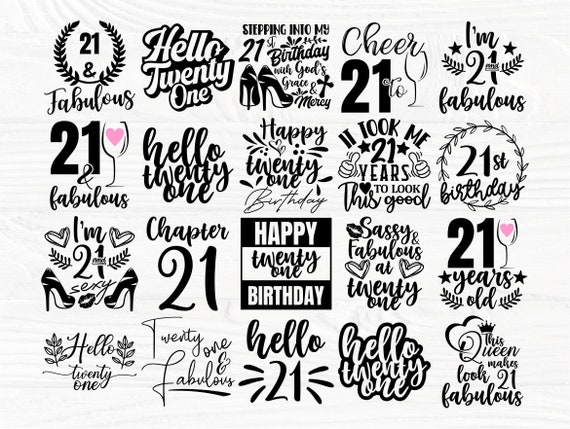 21
&
Fabulous
Hello
Twenty
One
STEPPING INTO MY
21st Birthday
with God's
Grace &
Mercy
Cheers
21
to
I'm
21 and
fabulous
21
&
fabulous
hello
twenty
one
Happy
twenty
one
Birthday
IT TOOK ME
21
YEARS
TO LOOK
This good
21st
birthday
I'm
21 and
sexy
Chapter
21
HAPPY
twenty
one
BIRTHDAY
Sassy
&
Fabulous
at
twenty
one
21
years
old
Hello
twenty
one
Twenty
one
&
Fabulous
hello
21
hello
twenty
one
This
Queen
makes
21
look
fabulous